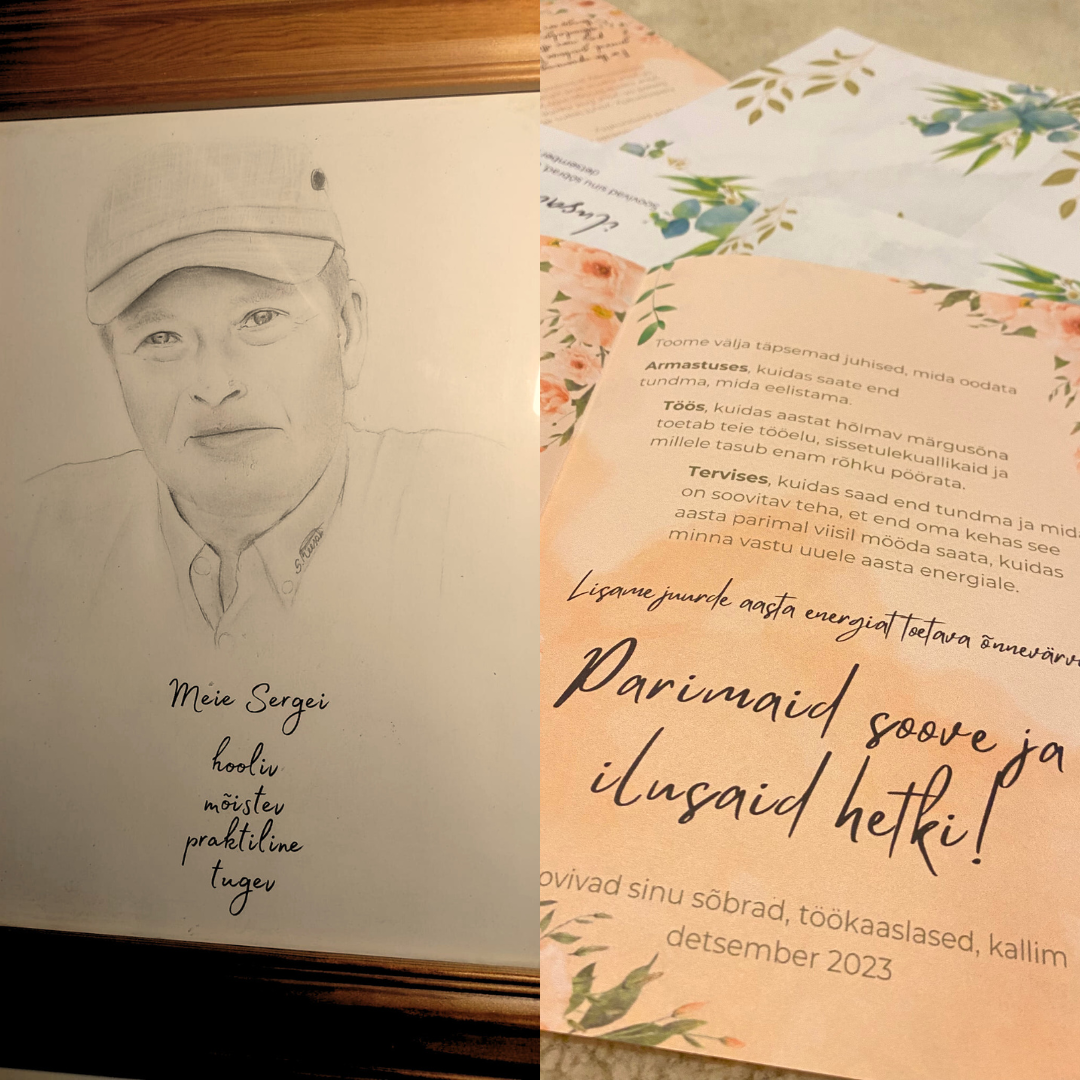 S. Kuusk
Meie Sergei
hooliv
mõistev
praktiline
tugev
Soovivad sinu sõbrad,
detsember
Toome välja täpsemad juhised, mida oodata
Armastuses, kuidas saate end
tundma, mida eelistama.
Töös, kuidas aastat hõlmav märgusõna
toetab teie tööelu, sissetulekuallikaid ja
millele tasub enam rõhku pöörata.
Tervises, kuidas saad end tundma ja mida
on soovitav teha, et end oma kehas see
aasta parimal viisil mööda saata, kuidas
minna vastu uuele aasta energiale.
Lisame juurde aasta energiat toetava õnnevärvi
Parimaid soove ja
ilusaid hetki!
ovivad sinu sõbrad, töökaaslased, kallim
detsember 2023